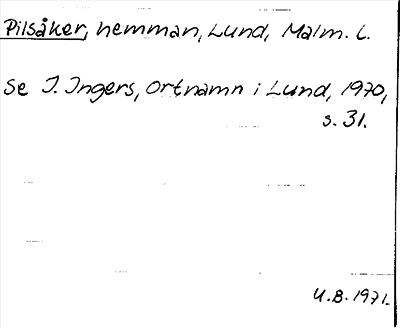 Pilsåker, hemman, Lund, Malm. L.
Se J. Ingers, Ortnamn i Lund, 1970,
s. 31.
U.B. 1971.